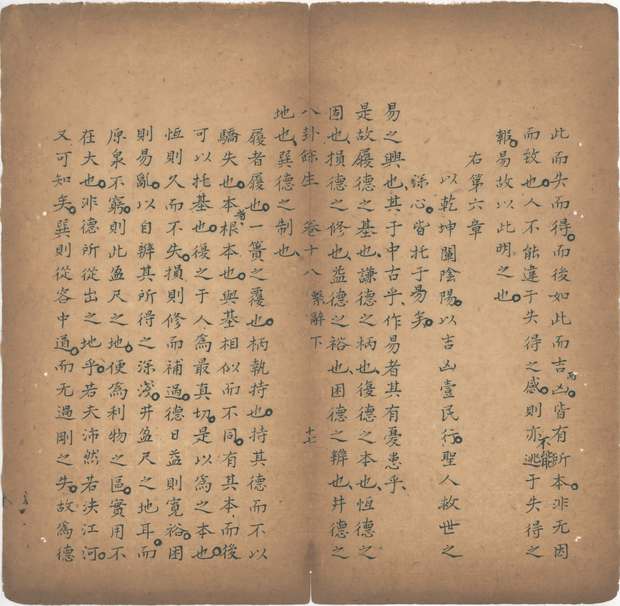 此而失而得而後如此而吉而凶皆有所本非无因
而致也人不能違于失得之感則亦不能逃于失得之
報易故以此明之也
右第六章
以乾坤闡陰陽以吉凶壹民行聖人救世之
深心皆托于易矣
易之興也其于中古乎作易者其有憂患乎
是故履德之基也謙德之柄也復德之本也恆德之
固也損德之修也益德之裕也困德之辨也井德之
地也巽德之制也
八卦餘生 卷十八 繫辭下 十七
履者履也一簣之覆也柄執持也持其德而不以
驕失也本者根本也與基相似而不同有其本而後
可以托基也復之于人為最真切是以為之本也
恆則久而不失損則修而補過德日益則寬裕困
則易亂以自辨其所得之深淺井盈尺之地耳而
原泉不窮則此盈尺之地便為利物之區實用不
在大也非德所從出之地乎若夫沛然若決江河
又可知矣巽則從容中道而无過剛之失故為德